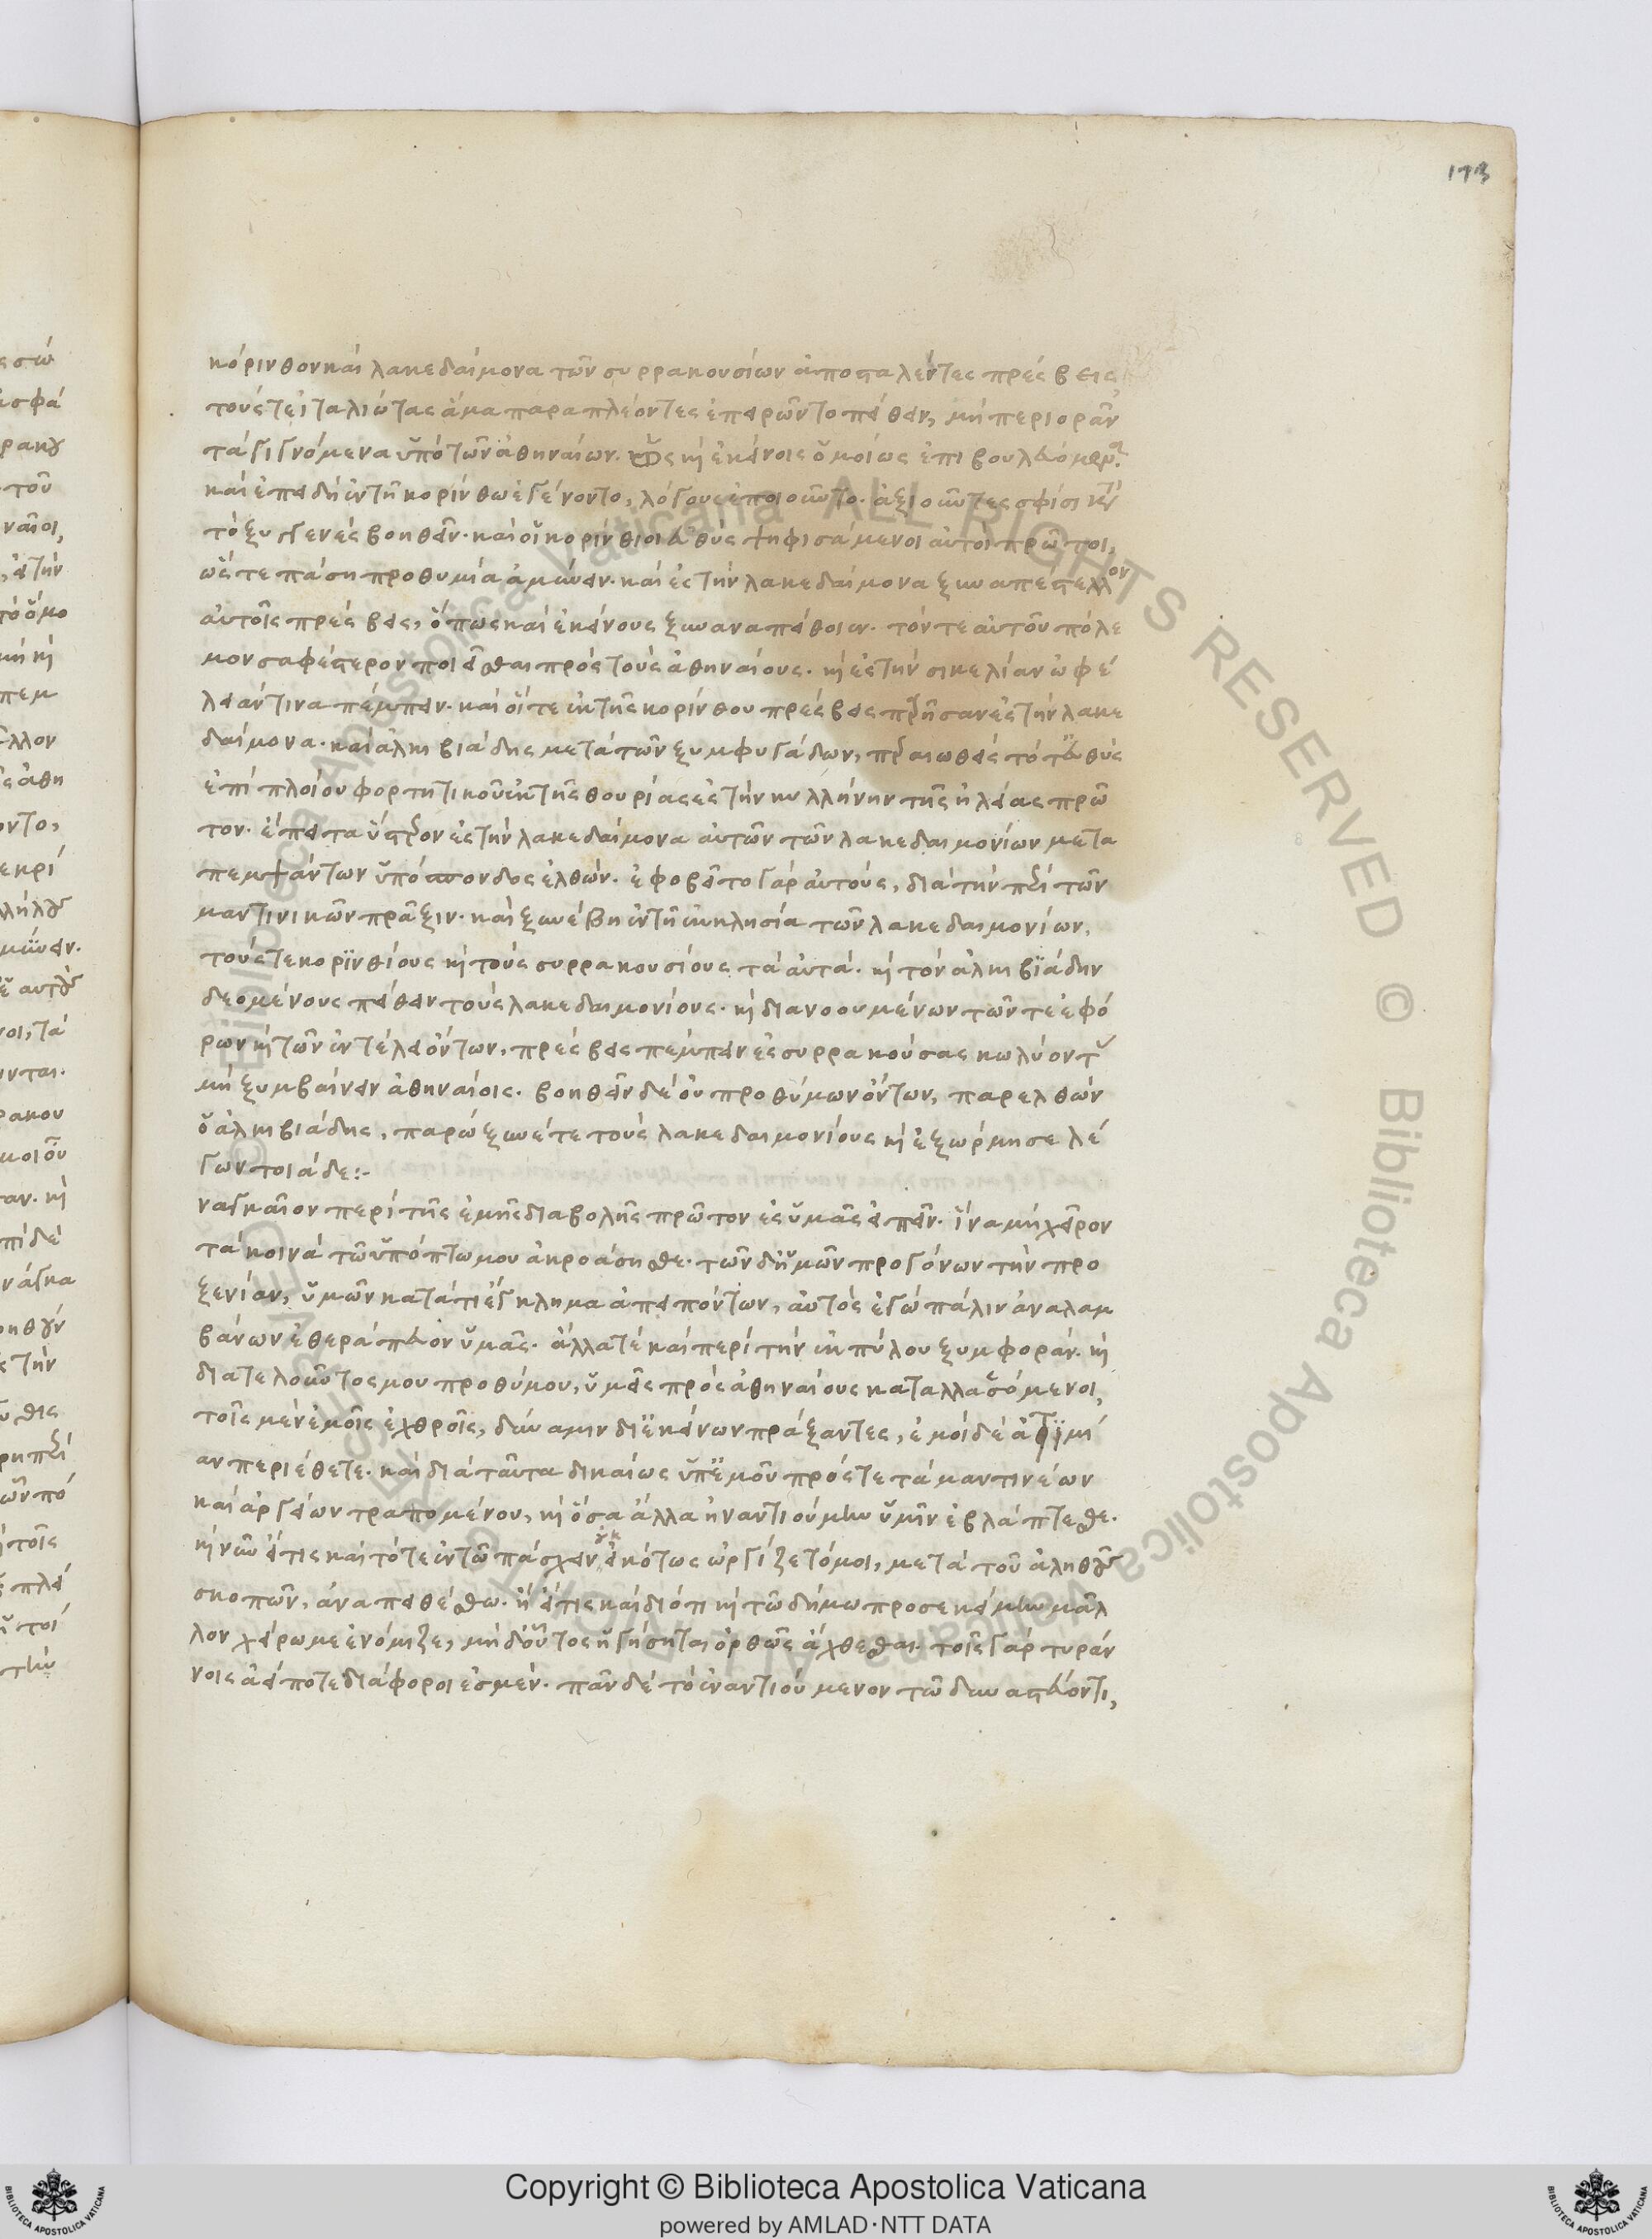 173
κόρινθον καὶ λακεδαίμονα τῶν συρρακουσίων ἀποσταλέντες πρέσβεις,
τούς τε ἰταλιώτας ἅμα παραπλέοντες ἐπειρῶντο πείθειν, μὴ περιορᾶν
τὰ γιγνόμενα ὑπὸ τῶν ἀθηναίων. ὡς κὶ ἐκείνοις ὁμοίως ἐπιβουλευόμενα.
καὶ ἐπειδὴ ἐν τῇ κορίνθω ἐγένοντο, λόγους ἐποιοῦντο. ἀξιοῦντες σφίσι κατὰ
τὸ ξυγγενὲς βοηθεῖν. καὶ οἱ κορίνθιοι εὐθὺς ψηφισάμενοι αὐτοὶ πρῶτοι,
ὥστε πάση προθυμία ἀμύνειν. καὶ ἐς τὴν λακεδαίμονα ξυναπέστελλον
αὐτοῖς πρέσβεις, ὅπως καὶ ἐκείνους ξυναναπείθοιεν. τόν τε αὐτοῦ πόλε
μον σαφέστερον ποιεῖσθαι πρὸς τοὺς ἀθηναίους. κὶ ἐς τὴν σικελίαν ὠφέ
λειάν τινα πέμπειν. καὶ οἵ τε ἐκ τῆς κορίνθου πρέσβεις παρῆσαν ἐς τὴν λακε
δαίμονα. καὶ ἀλκιβιάδης μετὰ τῶν ξυμφυγάδων, περαιωθεὶς τότ' εὐθὺς
ἐπὶ πλοίου φορτητικοῦ ἐκ τῆς θουρίας ἐς τὴν κυλλήνην τῆς ἠλείας πρῶ
τον. ἔπειτα ὕστερον ἐς τὴν λακεδαίμονα αὐτῶν τῶν λακεδαιμονίων μετα
πεμψάντων ὑπόσπονδος ἐλθών. ἐφοβεῖτο γὰρ αὐτούς, διὰ τὴν περὶ τῶν
μαντινικῶν πρᾶξιν. καὶ ξυνέβη ἐν τῇ ἐκκλησία τῶν λακεδαιμονίων,
τούς τε κορινθίους κὶ τοὺς συρρακουσίους τὰ αὐτά. κὶ τὸν ἀλκιβιάδην
δεομένους πείθειν τοὺς λακεδαιμονίους. κὶ διανοουμένων τῶν τε ἐφό
ρων κὶ τῶν ἐν τέλει ὄντων, πρέσβεις πέμπειν ἐς συρρακούσας κωλύοντας
μὴ ξυμβαίνειν ἀθηναίοις. βοηθεῖν δὲ οὐ προθύμων ὄντων, παρελθὼν
ὁ ἀλκιβιάδης, παρώξυνέ τε τοὺς λακεδαιμονίους κὶ ἐξώρμησε λέ
γων τοιάδε:-
ναγκαῖον περὶ τῆς ἐμῆς διαβολῆς πρῶτον ἐς ὑμᾶς εἰπεῖν. ἵνα μὴ χεῖρον
τὰ κοινὰ τῶ ὑπόπτω μου ἀκροάσησθε. τῶν δ' ὑμῶν προγόνων τὴν προ
ξενίαν, ὑμῶν κατά τι ἔγκλημα ἀπειπόντων, αὐτὸς ἐγὼ πάλιν ἀναλαμ
βάνων ἐθεράπευον ὑμᾶς. ἄλλα τὲ καὶ περὶ τὴν ἐκ πύλου ξυμφοράν. κὶ
διατελοῦντος μου προθύμου, ὑμεῖς πρὸς ἀθηναίους καταλλασσόμενοι,
τοῖς μὲν ἐμοῖς ἐχθροῖς, δύναμιν δι' ἐκείνων πράξαντες, ἐμοὶ δὲ ἀτιμί
αν περιέθετε. καὶ διὰ ταῦτα δικαίως ὑπ' ἐμοῦ πρός τε τὰ μαντινέων
καὶ ἀργείων τραπομένου, κὶ ὅσα ἄλλα ἠναντιούμην ὑμῖν ἐβλάπτεσθε.
κὶ νῦν εἴ τις καὶ τότε ἐν τῶ πάσχειν οὐκ εἰκότως ὠργίζετό μοι, μετὰ τοῦ ἀληθοῦς
σκοπῶν, ἀναπειθέσθω. ἢ εἴ τις καὶ διότι κὶ τῶ δήμω προσεκείμην μᾶλ
λον χείρω με ἐνόμιζε, μηδ' οὕτως ἡγήσηται ὀρθῶς ἄχθεσθαι. τοῖς γὰρ τυράν
νοις ἀεί ποτε διάφοροι ἐσμέν. πᾶν δὲ τὸ ἐναντιούμενον τῶ δυναστεύοντι,
Copyright © Biblioteca Apostolica Vaticana
powered by AMLAD·NTT DATA